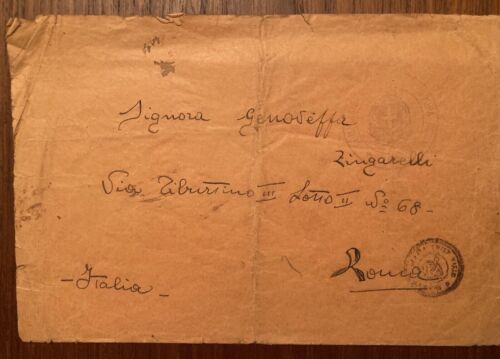 Signora Genovéffa
Zingarelli
Via Tiburtino III Lotto II No 68-
Roma
- Italia -